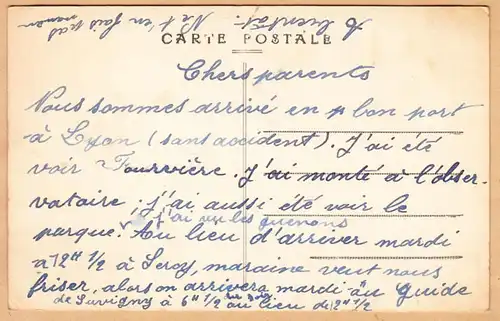 A bientôt. Ne t'en fais pas
maman
CARTE POSTALE
Chers parents
Nous sommes arrivé en bon port
à Lyon (sans accident). J'ai été
voir Fourvière. J'ai monté à l'obser-
vatoire ; j'ai aussi été voir le
j'ai vu les guenons
parque. Au lieu d'arriver mardi
à 12H 1/2 à Lercy, maraine veut nous
friser, alors on arrivera mardi au Guide
de Suvigny à 6H 1/2 au lieu de 12H 1/2